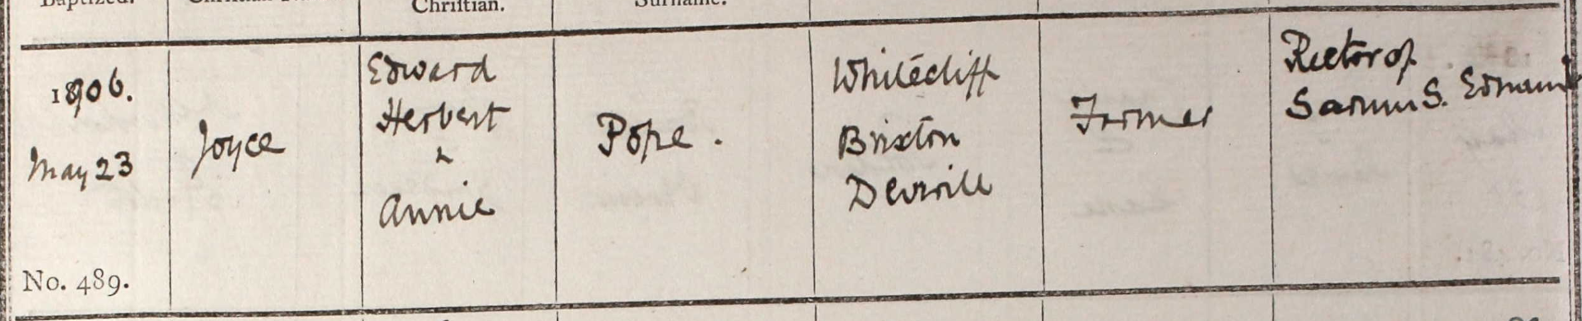 Baptized.
Christian.
Surname.
1906.
May 23
No. 489.
Joyce
Edward
Herbert
&
Annie
Pope.
Whitecliff
Brixton
Deverill
Farmer
Rector of
Sarum S. Edmund